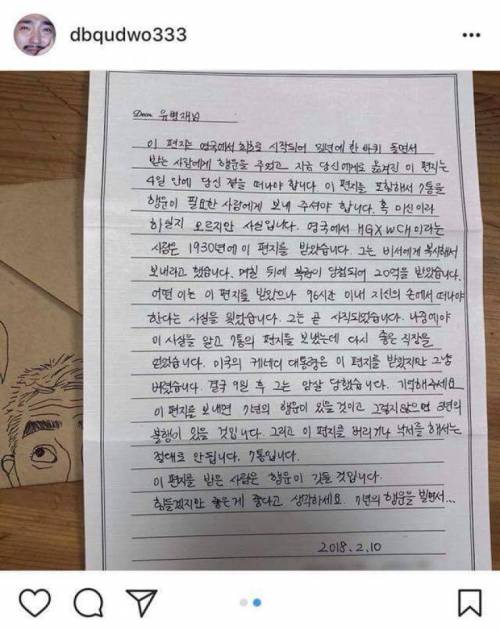 dbqudwo333
Dear 유병재님
이 편지는 영국에서 최초로 시작되어 일년에 한 바퀴 돌면서
받는 사람에게 행운을 주었고 지금 당신에게로 옮겨진 이 편지는
4일 안에 당신 곁을 떠나야 합니다. 이 편지를 포함해서 7통을
행운이 필요한 사람에게 보내 주셔야 합니다. 혹 미신이라
하실지 모르지만 사실입니다. 영국에서 HGXWCH이라는
사람은 1930년에 이 편지를 받았습니다. 그는 비서에게 복사해서
보내라고 했습니다. 며칠 뒤에 복권이 당첨되어 20억을 받았습니다.
어떤 이는 이 편지를 받았으나 96시간 이내 자신의 손에서 떠나야
한다는 사실을 잊었습니다. 그는 곧 사직되었습니다. 나중에야
이 사실을 알고 7통의 편지를 보냈는데 다시 좋은 직장을
얻었습니다. 미국의 케네디 대통령은 이 편지를 받았지만 그냥
버렸습니다. 결국 9일 후 그는 암살 당했습니다. 기억해주세요
이 편지를 보내면 7년의 행운이 있을 것이고 그렇지 않으면 3년의
불행이 있을 것입니다. 그리고 이 편지를 버리거나 낙서를 해서는
절대로 안됩니다. 7통입니다.
이 편지를 받은 사람은 행운이 깃들 것입니다.
힘들겠지만 좋은게 좋다고 생각하세요. 7년의 행운을 빌면서...
2018.2.10